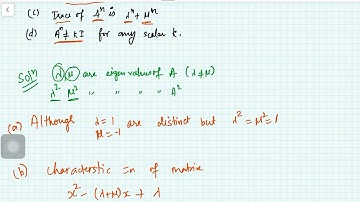 (c) Trace of Aⁿ is λⁿ + μⁿ
(d) Aⁿ ≠ kI for any scalar k.
Solⁿ λ, μ are eigen values of A (λ≠μ)
λ² μ² " " " " A²
(a) Although λ = 1 are distinct but λ² = μ² = 1
μ = -1
(b) characterstic =n of matrix
x² - (λ+μ)x + λ